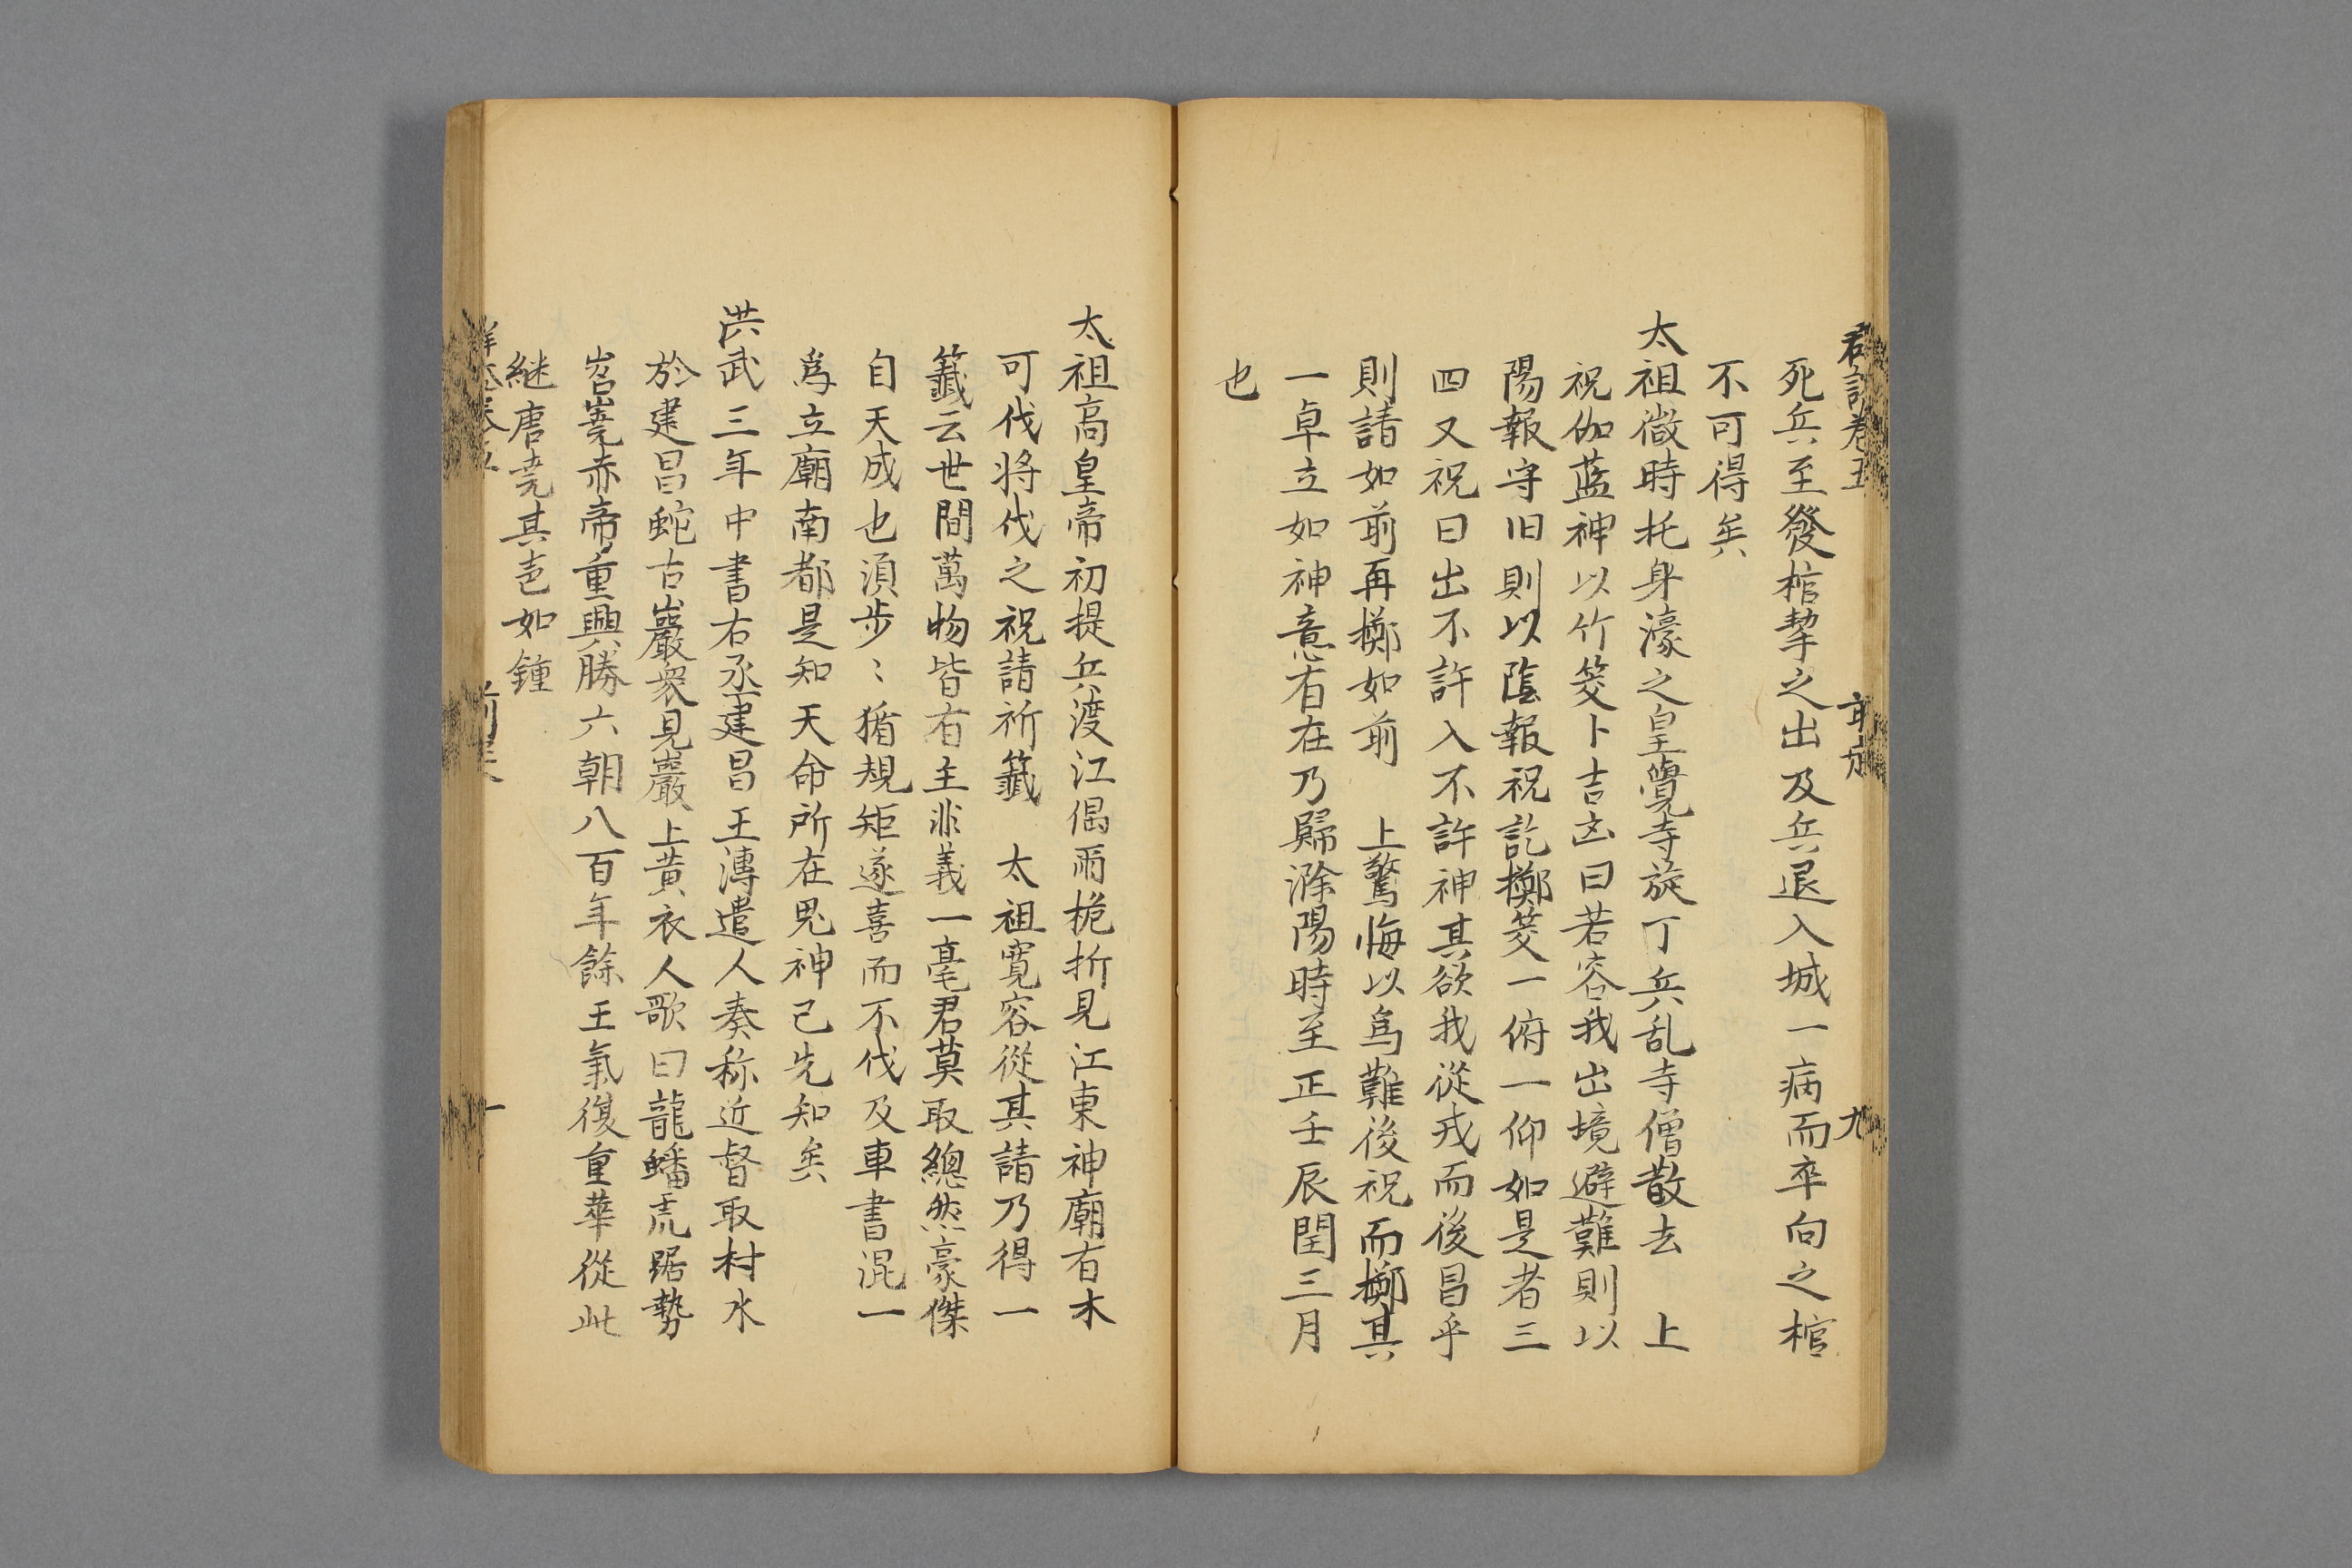 死兵至發棺挈之出及兵退入城一病而卒向之棺
不可得矣
太祖微時托身濠之皇覺寺旋丁兵乱寺僧散去　上
祝伽藍神以竹筊卜吉凶曰若容我出境避難則以
陽報守旧則以陰報祝訖擲筊一俯一仰如是者三
四又祝曰出不許入不許神其欲我從戎而後昌乎
則請如前再擲如前　上驚悔以為難後祝而擲其
一卓立如神意有在乃歸滁陽時至正壬辰閏三月
也
太祖高皇帝初提兵渡江偶雨桅折見江東神廟有木
可伐将伐之祝請祈籤　太祖寬容從其請乃得一
籤云世間萬物皆有主非義一毫君莫取總然豪傑
自天成也須步〻循規矩遂喜而不伐及車書混一
為立廟南都是知天命所在鬼神已先知矣
洪武三年中書右丞建昌王溥遣人奏称近督取材水
於建昌蛇古巖衆見巖上黄衣人歌曰龍蟠虎踞勢
岧嶤赤帝重興勝六朝八百年餘王氣復重華從此
継唐尭其㐲如鐘